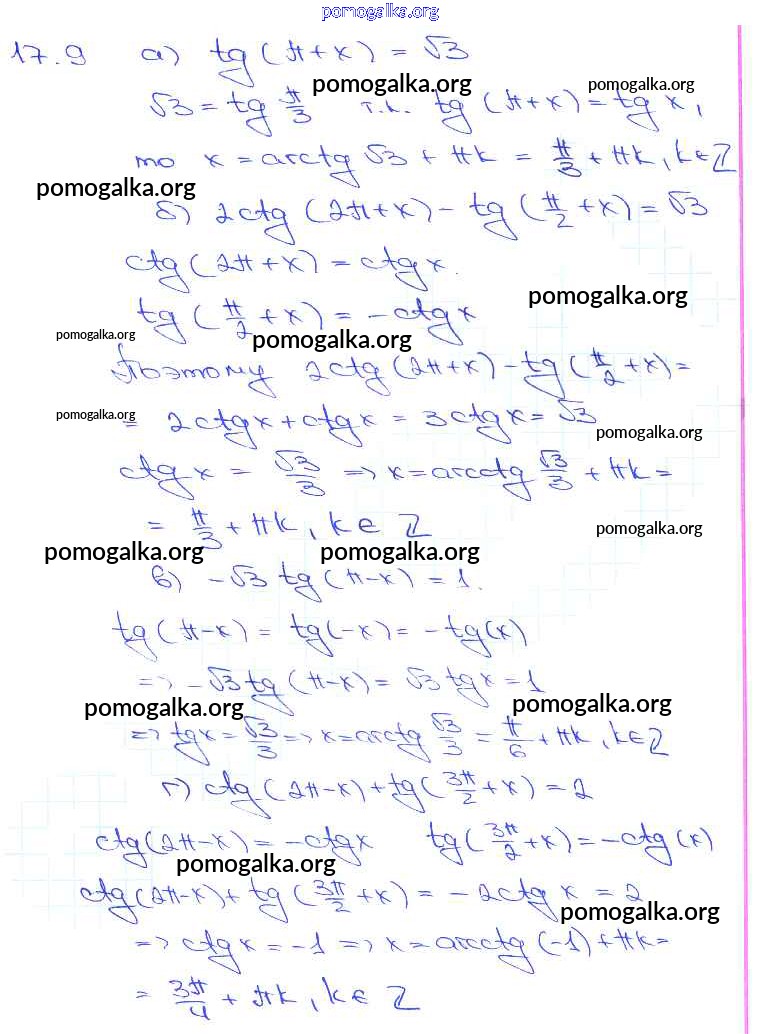 pomogalka.org
17.9 а) tg(π+x) = √3
pomogalka.org pomogalka.org
√3 = tg π/3 т.к. tg(π+x) = tg x,
то x = arctg √3 + πk = π/3 + πk, k∈Z
pomogalka.org
б) 2ctg(2π+x) - tg(π/2+x) = √3
ctg(2π+x) = ctg x.
pomogalka.org
tg(π/2+x) = -ctg x
pomogalka.org pomogalka.org
Поэтому 2ctg(2π+x) - tg(π/2+x) =
pomogalka.org
= 2ctg x + ctg x = 3ctg x = √3
pomogalka.org
ctg x = √3/3 => x = arcctg √3/3 + πk =
= π/3 + πk, k∈Z
pomogalka.org
pomogalka.org pomogalka.org
в) -√3 tg(π-x) = 1.
tg(π-x) = tg(-x) = -tg(x)
=> -√3tg(π-x) = √3 tg x = 1
pomogalka.org pomogalka.org
=> tg x = √3/3 => x = arctg √3/3 = π/6 + πk, k∈Z
г) ctg(2π-x) + tg(3π/2+x) = 2
ctg(2π-x) = -ctg x tg(3π/2+x) = -ctg(x)
pomogalka.org
ctg(2π-x) + tg(3π/2+x) = -2ctg x = 2
pomogalka.org
=> ctg x = -1 => x = arcctg(-1) + πk =
= 3π/4 + πk, k∈Z